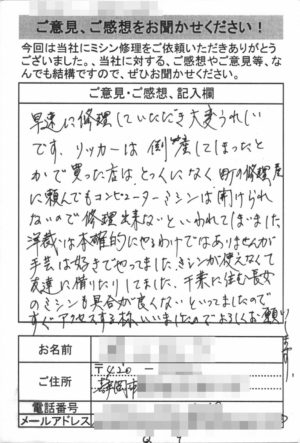 ご意見、ご感想をお聞かせください！
今回は当社にミシン修理をご依頼いただきありがとう
ございました。、当社に対する、ご感想やご意見等、な
んでも結構ですので、ぜひお聞かせください。
ご意見・ご感想、記入欄
早速に修理していただき大変うれしい
です。リッカーは倒産してしまったと
かで買った店は、とっくになく町の修理屋
に頼んでもコンピューターミシンは開けられ
ないので修理出来ないといわれてしまいました
洋裁は本確的にやるわけでなありませんが
手芸は好きでやってました。ミシンが使えなくて
友達に借りたりしてました。千葉に住む長女
のミシンも具合が良くないといってましたので
すぐアクセスする様、いいましたのでよろしくお願い
します
お名前
ご住所
〒420-
静岡市
電話番号
メールアドレス